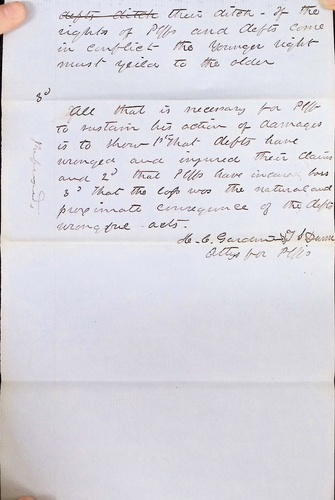 defts ditch their ditch - If the
rights of Plffs and defts come
in conflict the younger right
must yeild to the older
3d
All that is necessary for Plff
to sustain his action of damages
is to show 1st That defts have
wronged and injured their claims
and 2d that Plffs have incurred loss
3d that the loss was the natural and
proximate consequence of the defts
wrongful acts.
H. C. Gardiner &
Attys for Plffs
Refused